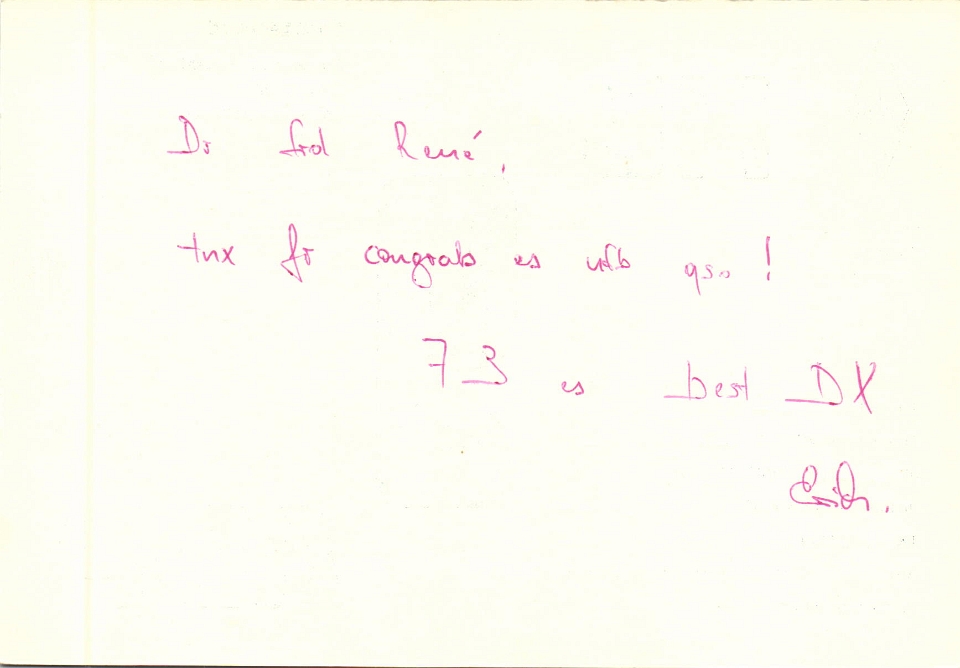 Dr frd René,
tnx fr congrats es vfb qso !
73 es best DX
Erich.